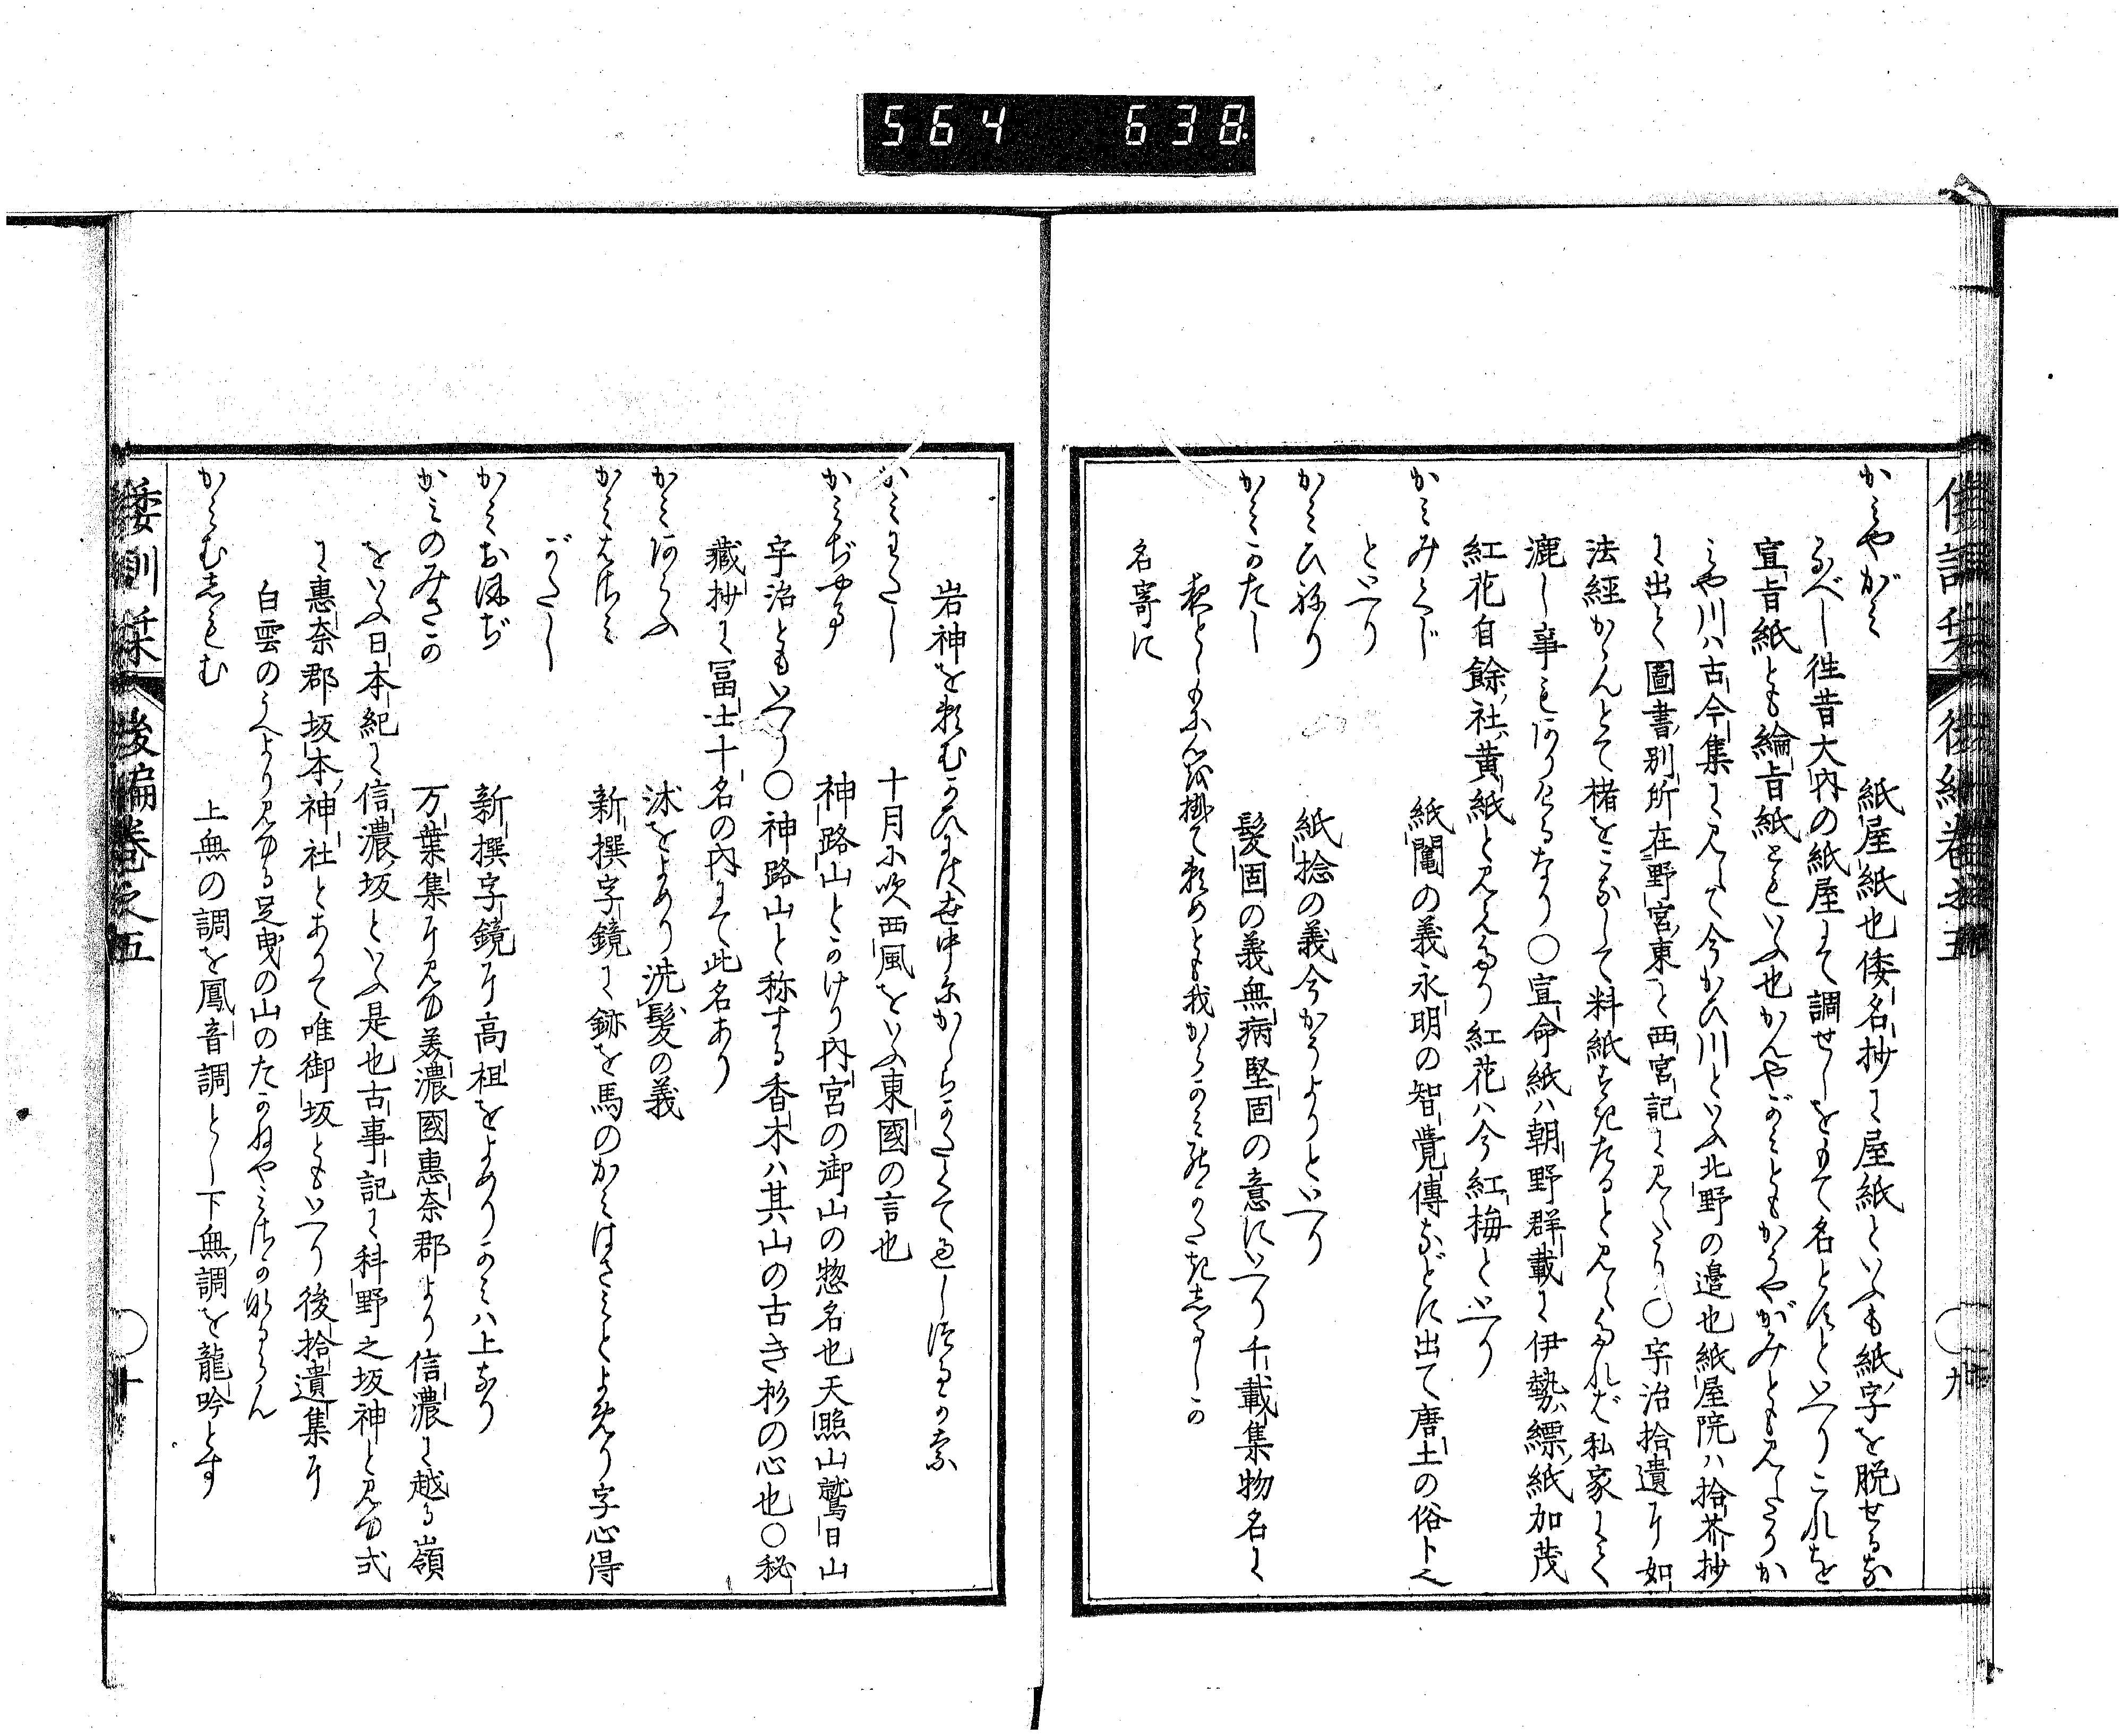 564 638
かみやがみ 紙屋紙也倭名抄に屋紙といふも紙字を脱せるな
るべし往昔大内の紙屋にて調せしをもて名とすといへりこれを
宣旨紙とも綸旨紙ともいふ也かんやがみともかうやがみとも見えたりか
みや川ハ古今集に見えて今かひ川といふ北野の邉也紙屋院ハ拾芥抄
に出て圖書別所在野宮東と西宮記に見えたり〇宇治拾遺に如
法經かゝんとて楮をこなして料紙すきたると見えたれば私家にても
漉し事もありけるなり〇宣命紙ハ朝野群載に伊勢縹紙加茂
紅花自餘社黄紙と見えたり紅花ハ今紅梅といへり
かみみくじ 紙鬮の義永明の智覺傳などに出て唐土の俗卜也
といへり
かみひねり 紙捻の義今かうよりといへり
かみかたし 髪固の義無病堅固の意にいへり千載集物名に
掛て頼めとも我からかみ
名寄に
岩神を頼む 世中に
かみわたし 十月に吹西風をいふ東國の言也
かみぢやま 神路山とかけり内宮の御山の惣名也天照山鷲日山
宇治ともいへり〇神路山と称する香木ハ其山の古き杉の心也〇秘
藏抄に冨士十名の内にて此名あり
かみあらふ 沐をよめり洗髪の義
かみはさみ 新撰字鏡に鉢を馬のかみはさみとよめり字心得
がたし
かみおほぢ 新撰字鏡に高祖をよめりかみハ上なり
かみのみさか 万葉集に見ゆ美濃國惠奈郡より信濃に越る嶺
をいふ日本紀に信濃坂といふ是也古事記に科野之坂神と見ゆ式
に惠奈郡坂本神社とありて唯御坂ともいへり後拾遺集に
白雲のうへより見ゆる足曳の山のたかねやみさかなるらん
かみむしもむ 上無の調を鳳音調とし下無調を龍吟とす
倭訓栞 後編卷之五 〇十